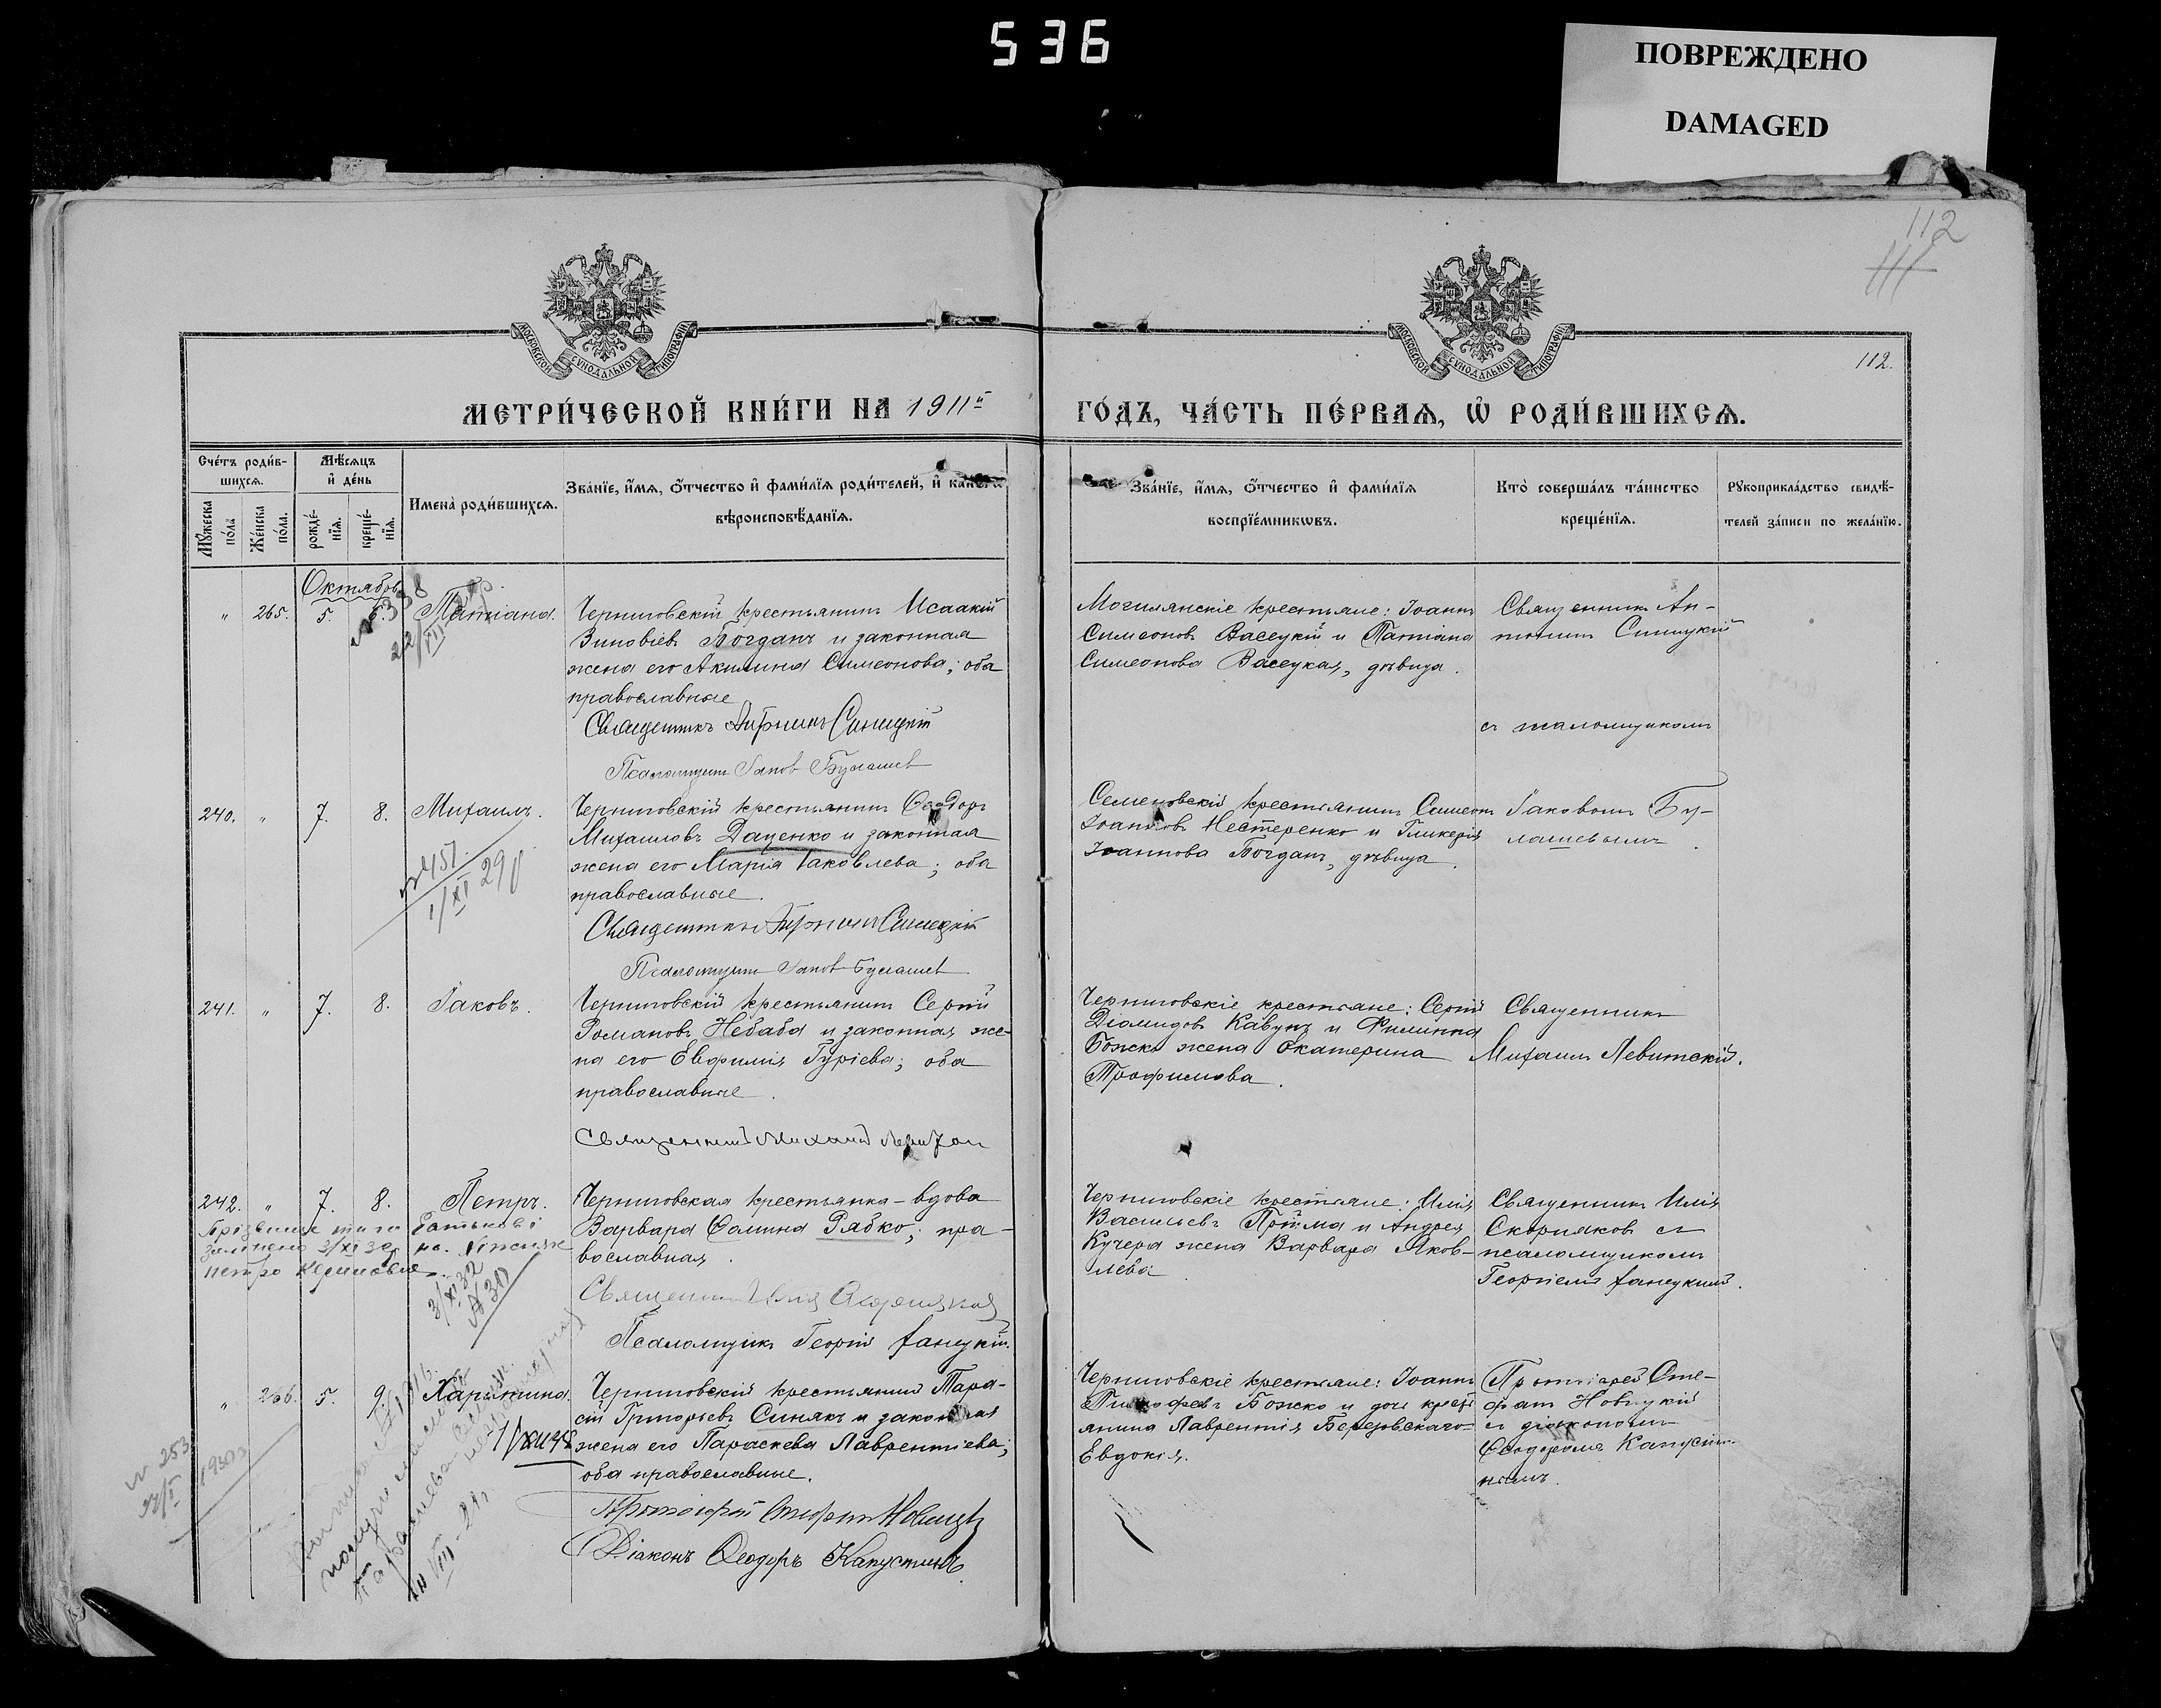 536
ПОВРЕЖДЕНО
DAMAGED
112
111
МОСКОВСКОЙ СѴНОДАЛЬНОЙ ТИПОГРАФІИ
МОСКОВСКОЙ СѴНОДАЛЬНОЙ ТИПОГРАФІИ
112.
МЕТРИ́ЧЕСКОЙ КНИ́ГИ НА 1911й
ГО́ДЪ, ЧА́СТЬ ПЕ́РВАЯ, Ѽ РОДИ́ВШИХСЯ.
Сче́тъ роди́в-
шихся.
Мѣ́сяцъ
и҆ де́нь
Мꙋ́жеска
по́ла
Же́нска
по́ла.
рожде́-
нїя.
креще́-
нїя.
Имена̀ роди́вшихся.
Зва́нїе, и҆́мя, ѻ҆́тчество и҆ фами́лїя роди́телей, и҆ како́гѡ
вѣроисповѣ́данїя.
Зва́нїе, и҆́мя, ѻ҆́тчество и҆ фами́лїя
воспрїе́мникѡвъ.
Кто̀ соверша́лъ та́инство
креще́нїя.
Рꙋкоприкла́дство свидѣ́-
телей за́писи по жела́нїю.
Октябрь
" 265. 5. 6. Татіана.
Черниговскій крестьянинъ Исаакій
Зиновіевъ Богданъ и законная
жена его Акилина Симеонова; оба
православные
Священникъ Антонинъ Синицкій
Псаломщикъ Іаковъ Булашев
Могилянскіе крестьяне: Іоаннъ
Симеоновъ Васецкій и Татіана
Симеонова Васецкая, дѣвица.
Священникъ Ан-
тонинъ Синицкій
съ псаломщикомъ
Іаковомъ Бу-
лашевымъ
240. " 7. 8. Михаилъ.
№ 457
1/XI 29
Черниговскій крестьянинъ Ѳеодоръ
Михаиловъ Даценко и законная
жена его Марія Іаковлева; оба
православные.
Священникъ Антонинъ Синицкій
Псаломщикъ Іаковъ Булашев
Семеновскій крестьянинъ Симеонъ
Іоанновъ Нестеренко и Гликерія
Іоаннова Богданъ, дѣвица.
241. " 7. 8. Іаковъ.
Черниговскій крестьянинъ Сергій
Романовъ Небаба и законная же-
на его Евфимія Гуріева; оба
православные.
Священникъ Михаилъ
Черниговскіе крестьяне: Сергій
Діомидовъ Кавунъ и Филиппа
Божко жена Екатерина
Трофимова.
Священникъ
Михаилъ Левитскій.
242. " 7. 8. Петръ.
Прізвище та по батькові
3/XI 32
№ 30
Черниговская крестьянка - вдова
Варвара Фомина Рябко; пра-
вославная.
Священникъ Илія Скорняков
Псаломщикъ Георгій Ганецкій.
Черниговскіе крестьяне: Илія
Васильевъ Прійма и Андрея
Кучера жена Варвара Яков-
лева
Священникъ Илія
Скорняков съ
псаломщикомъ
Георгіемъ Ганецкимъ.
" 266. 5. 9. Харитина.
№ 253
Черниговскій крестьянинъ Тара-
сій Григорьевъ Синякъ и законная
жена его Параскева Лаврентіева;
оба православные.
Протоіерей Стефанъ Новицкій
Діаконъ Ѳеодоръ Капустинъ
Черниговскіе крестьяне: Іоаннъ
Тимофеевъ Божко и дочь кресть
янина Лаврентія Березовскаго
Евдокія.
Протоіерей Сте-
фанъ Новицкій
съ діакономъ
Ѳеодоромъ Капусти-
нымъ.